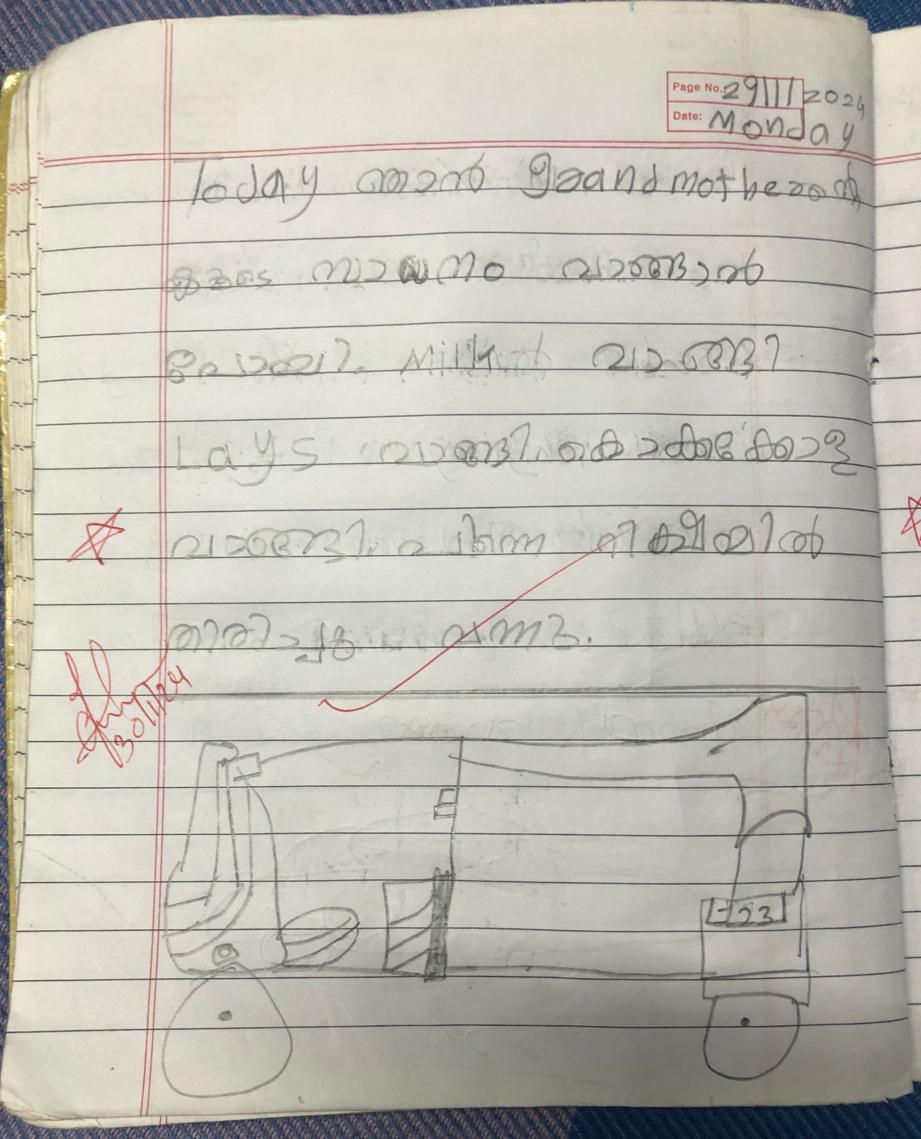 Page No. 29/11/2024
Date: Monday
Today ഞാൻ grandmotherന്റെ
കൂടെ സാധനം വാങ്ങാൻ
പോയി. Milk വാങ്ങി
Lays വാങ്ങി
വാങ്ങി. പിന്നെ
തിരിച്ചു വന്നു.
30/11/24
L-23